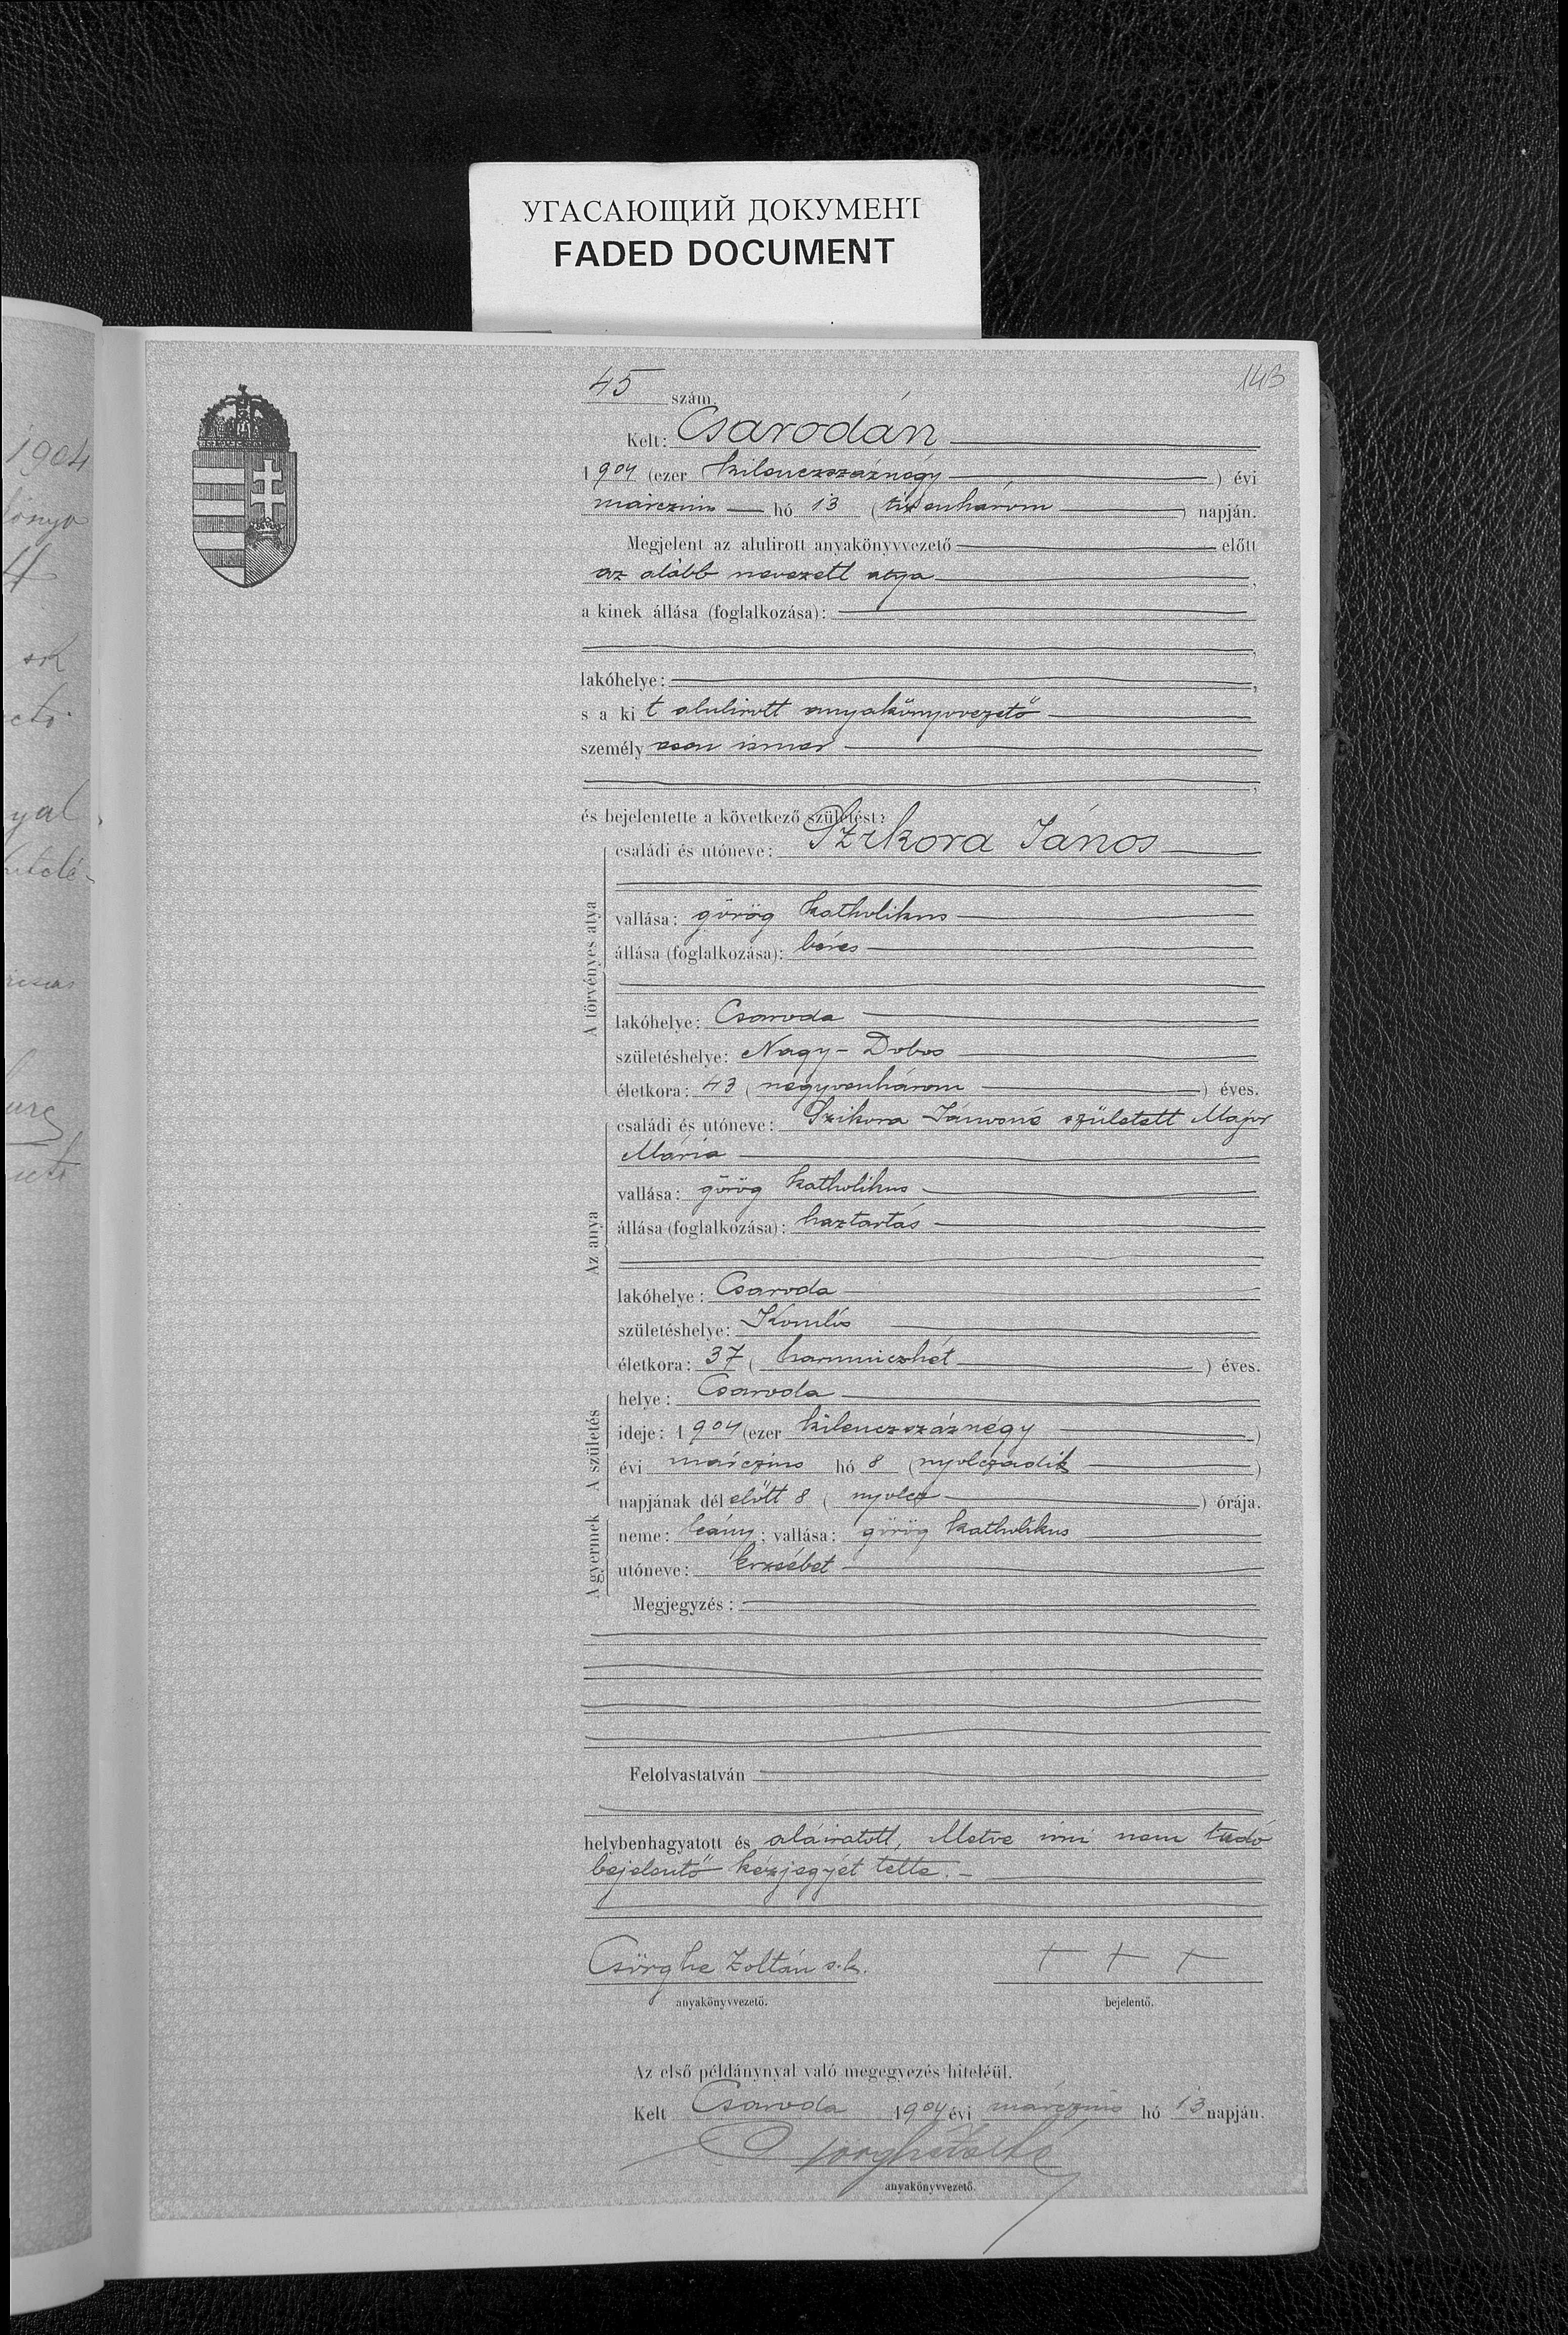 УГАСАЮЩИЙ ДОКУМЕНТ
FADED DOCUMENT
143
45 szám.
Kelt: Csarodán
1904 (ezer kilenczszáznégy) évi
márczius hó 13 (tizenhárom) napján.
Megjelent az alulirott anyakönyvvezető előtt
az alább nevezett atya,
a kinek állása (foglalkozása):
lakóhelye:
s a kit alulirott anyakönyvvezető
személyesen ismer
és bejelentette a következő születést:
A törvényes atya
családi és utóneve: Szikora János
vallása: görög katholikus
állása (foglalkozása): béres
lakóhelye: Csaroda
születéshelye: Nagy-Dobos
életkora: 43 (negyvenhárom) éves.
Az anya
családi és utóneve: Szikora Jánosné született Major
Mária
vallása: görög katholikus
állása (foglalkozása): haztartás
lakóhelye: Csaroda
születéshelye: Komlós
életkora: 37 (harminczhét) éves.
A születés
helye: Csaroda
ideje: 1904 (ezer kilenczszáznégy)
évi márczius hó 8 (nyolczadik)
napjának délelőtt 8 (nyolcz) órája.
A gyermek
neme: leány; vallása: görög katholikus
utóneve: Erzsébet
Megjegyzés:
Felolvastatván
helybenhagyatott és aláiratott, illetve irni nem tudó
bejelentő kézjegyét tette.-
Csörghe Zoltán s.k. + + +
anyakönyvvezető. bejelentő.
Az első példánynyal való megegyezés hiteléül.
Kelt Csaroda 1904 évi márczius hó 13 napján.
anyakönyvvezető.
1904